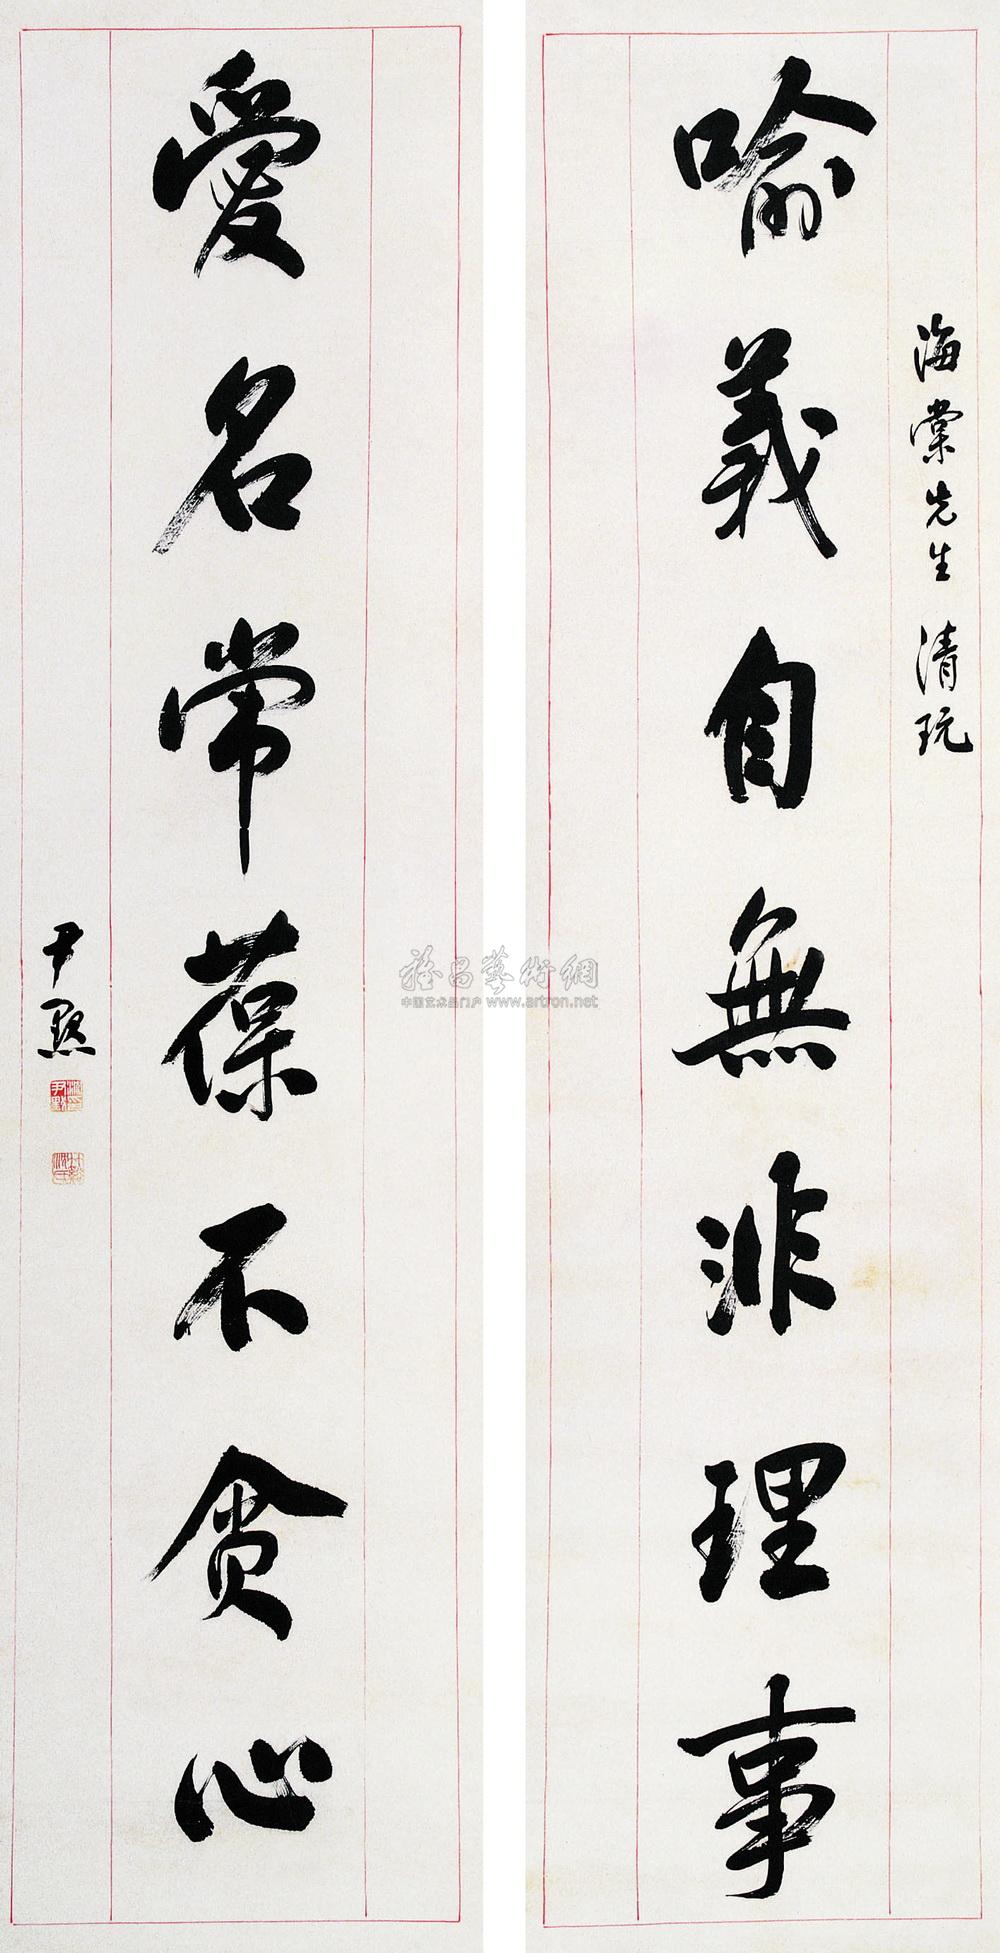 海棠先生 清玩
喻義自無非理事
愛名常葆不貪心
尹默
雅昌藝術網
中国艺术品门户 www.artron.net